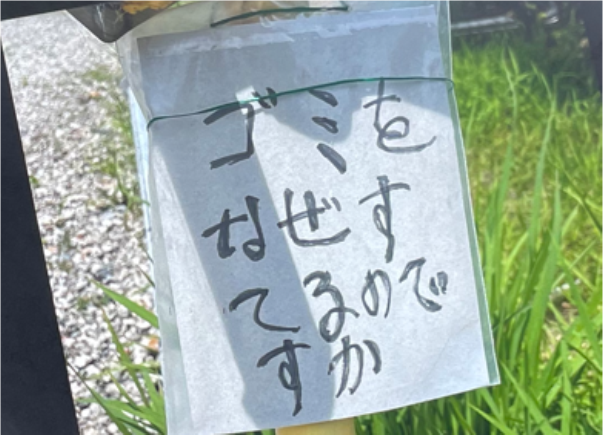 ゴミを
なぜす
てるので
すか